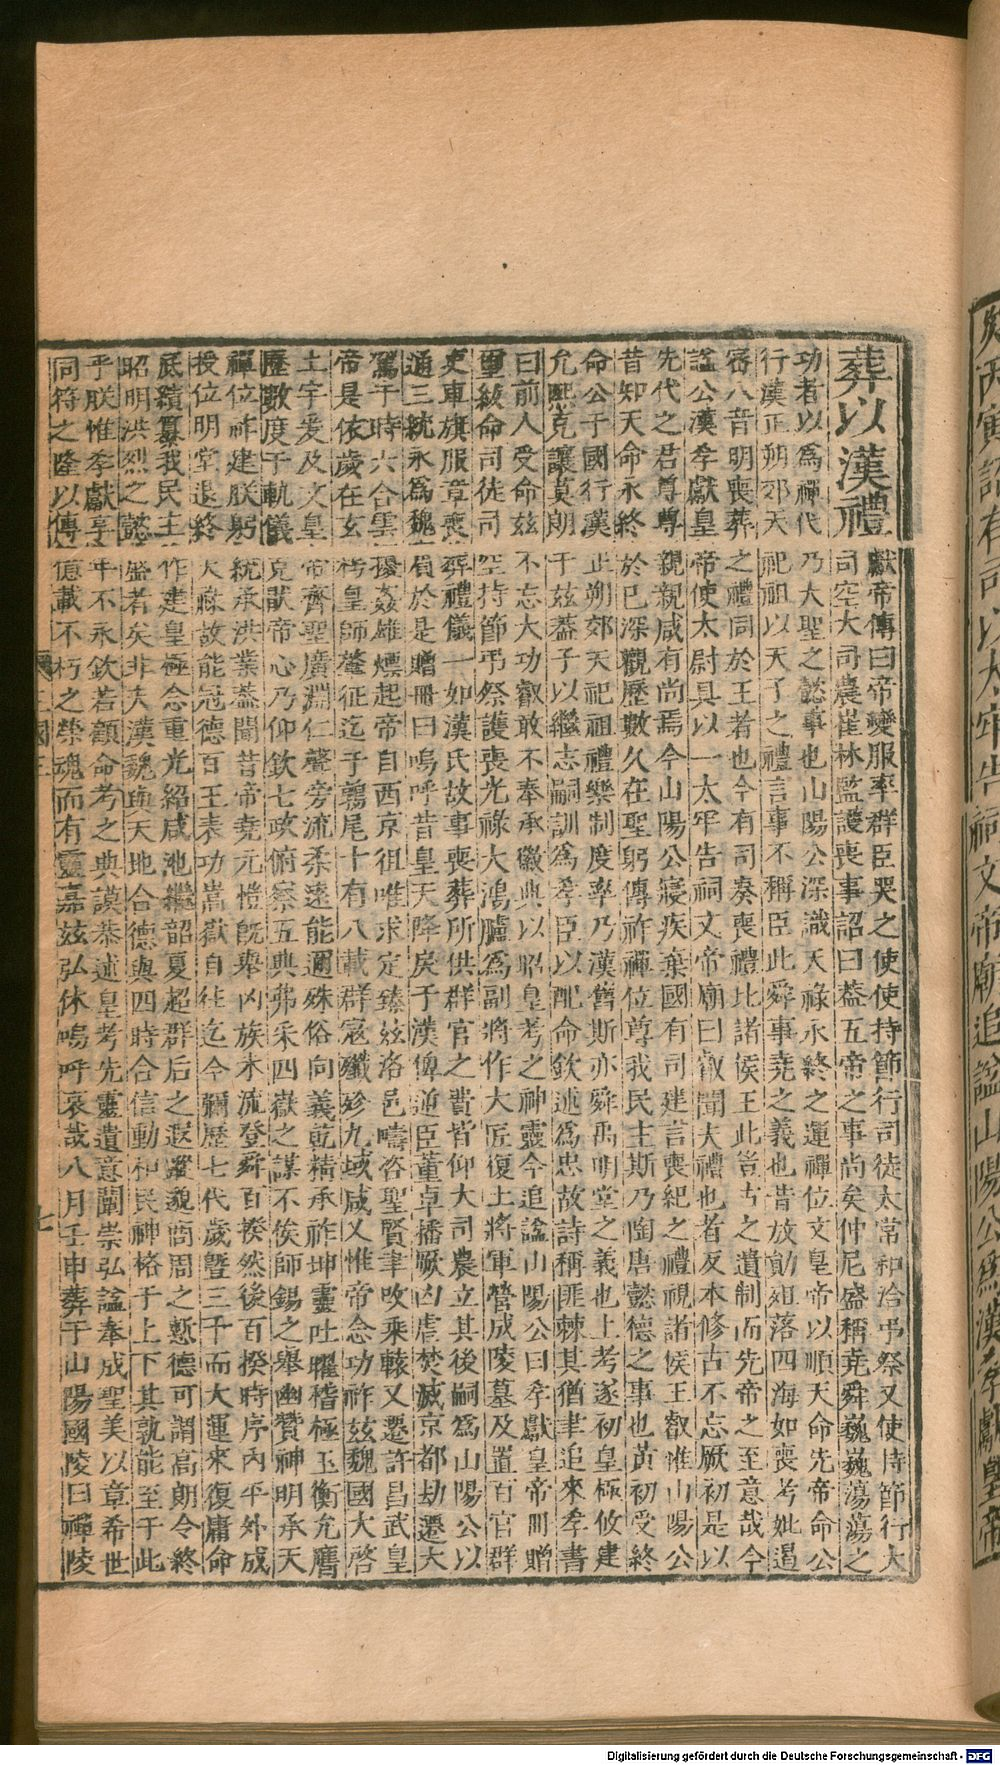 丙寅詔有司以太牢告祠文帝廟追諡山陽公爲漢孝獻皇帝
葬以漢禮
獻帝傳曰帝變服率群臣哭之使使持節行司徒太常和洽弔祭又使持節行大
司空大司農崔林監護喪事詔曰蓋五帝之事尚矣仲尼盛稱堯舜巍巍蕩蕩之
功者以爲禪代乃大聖之懿事也山陽公深識天祿永終之運禪位文皇帝以順天命先帝命公
行漢正朔郊天祀祖以天子之禮言事不稱臣此舜事堯之義也昔放勛殂落四海如喪考妣遏
密八音明喪葬之禮同於王者也今有司奏喪禮比諸侯王此豈古之遺制而先帝之至意哉今
諡公漢孝獻皇帝使太尉具以一太牢告祠文帝廟曰叡聞夫禮也者反本修古不忘厥初是以
先代之君尊尊親親咸有尚焉今山陽公寢疾棄國有司建言喪紀之禮視諸侯王叡惟山陽公
昔知天命永終於己深觀歷數久在聖躬傳祚禪位尊我民主斯乃陶唐懿德之事也黃初受終
命公于國行漢正朔郊天祀祖禮樂制度率乃漢舊斯亦舜禹明堂之義也上考遂初皇極攸建
允熙克讓莫朗于茲蓋子以繼志嗣訓爲孝臣以配命欽述爲忠故詩稱匪棘其猶聿追來孝書
曰前人受命茲不忘大功叡敢不奉承徽典以昭皇考之神靈今追諡山陽公曰孝獻皇帝冊贈
璽紱命司徒司空持節弔祭護喪光祿大鴻臚爲副將作大匠復土將軍營成陵墓及置百官群
吏車旗服章喪葬禮儀一如漢氏故事喪葬所供群官之費皆仰大司農立其後嗣爲山陽公以
通三統永爲魏賓於是贈冊曰嗚呼昔皇天降戾于漢俾逆臣董卓播厥凶虐焚滅京都劫遷大
駕于時六合雲擾姦雄熛起帝自西京徂唯求定臻茲洛邑疇咨聖賢聿改乘轅又遷許昌武皇
帝是依歲在玄枵皇師肇征迄于鶉尾十有八載群寇殲殄九域咸乂惟帝念功祚茲魏國大啓
土宇爰及文皇帝齊聖廣淵仁聲旁流柔遠能邇殊俗向義乾精承祚坤靈吐曜稽極玉衡允膺
歷數度于軌儀克厭帝心乃仰欽七政俯察五典弗采四嶽之謀不俟師錫之舉幽贊神明承天
禪位祚建朕躬統承洪業蓋聞昔帝堯元愷既舉凶族未流登舜百揆然後百揆時序內平外成
授位明堂退終天祿故能冠德百王表功嵩嶽自往迄今彌歷七代歲暨三千而大運來復庸命
厎績纂我民主作建皇極念重光紹咸池繼韶夏超群后之遐蹤邈商周之慙德可謂高朗令終
昭明洪烈之懿盛者矣非夫漢魏與天地合德與四時合信動和民神格于上下其孰能至于此
乎朕惟孝獻享年不永欽若顧命考之典謨恭述皇考先靈遺意闡崇弘諡奉成聖美以章希世
同符之隆以傳億載不朽之榮魂而有靈嘉茲弘休嗚呼哀哉八月壬申葬于山陽國陵曰禪陵
七
Digitalisierung gefördert durch die Deutsche Forschungsgemeinschaft - DFG